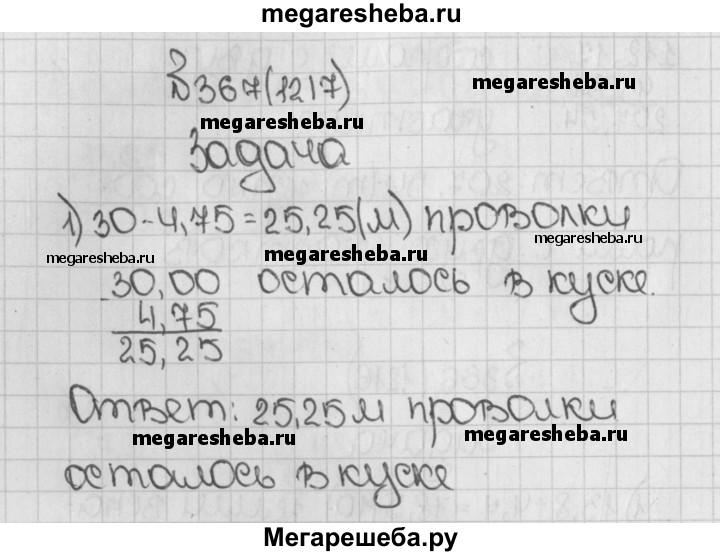 megaresheba.ru
№367(1217)
megaresheba.ru
megaresheba.ru
Задача
1) 30-4,75=25,25(м) проволки
megaresheba.ru
megaresheba.ru
megaresheba.ru
30,00 осталось в куске.
- 4,75
25,25
Ответ: 25,25м проволки
megaresheba.ru
megaresheba.ru
осталось в куске
Мегарешеба.ру